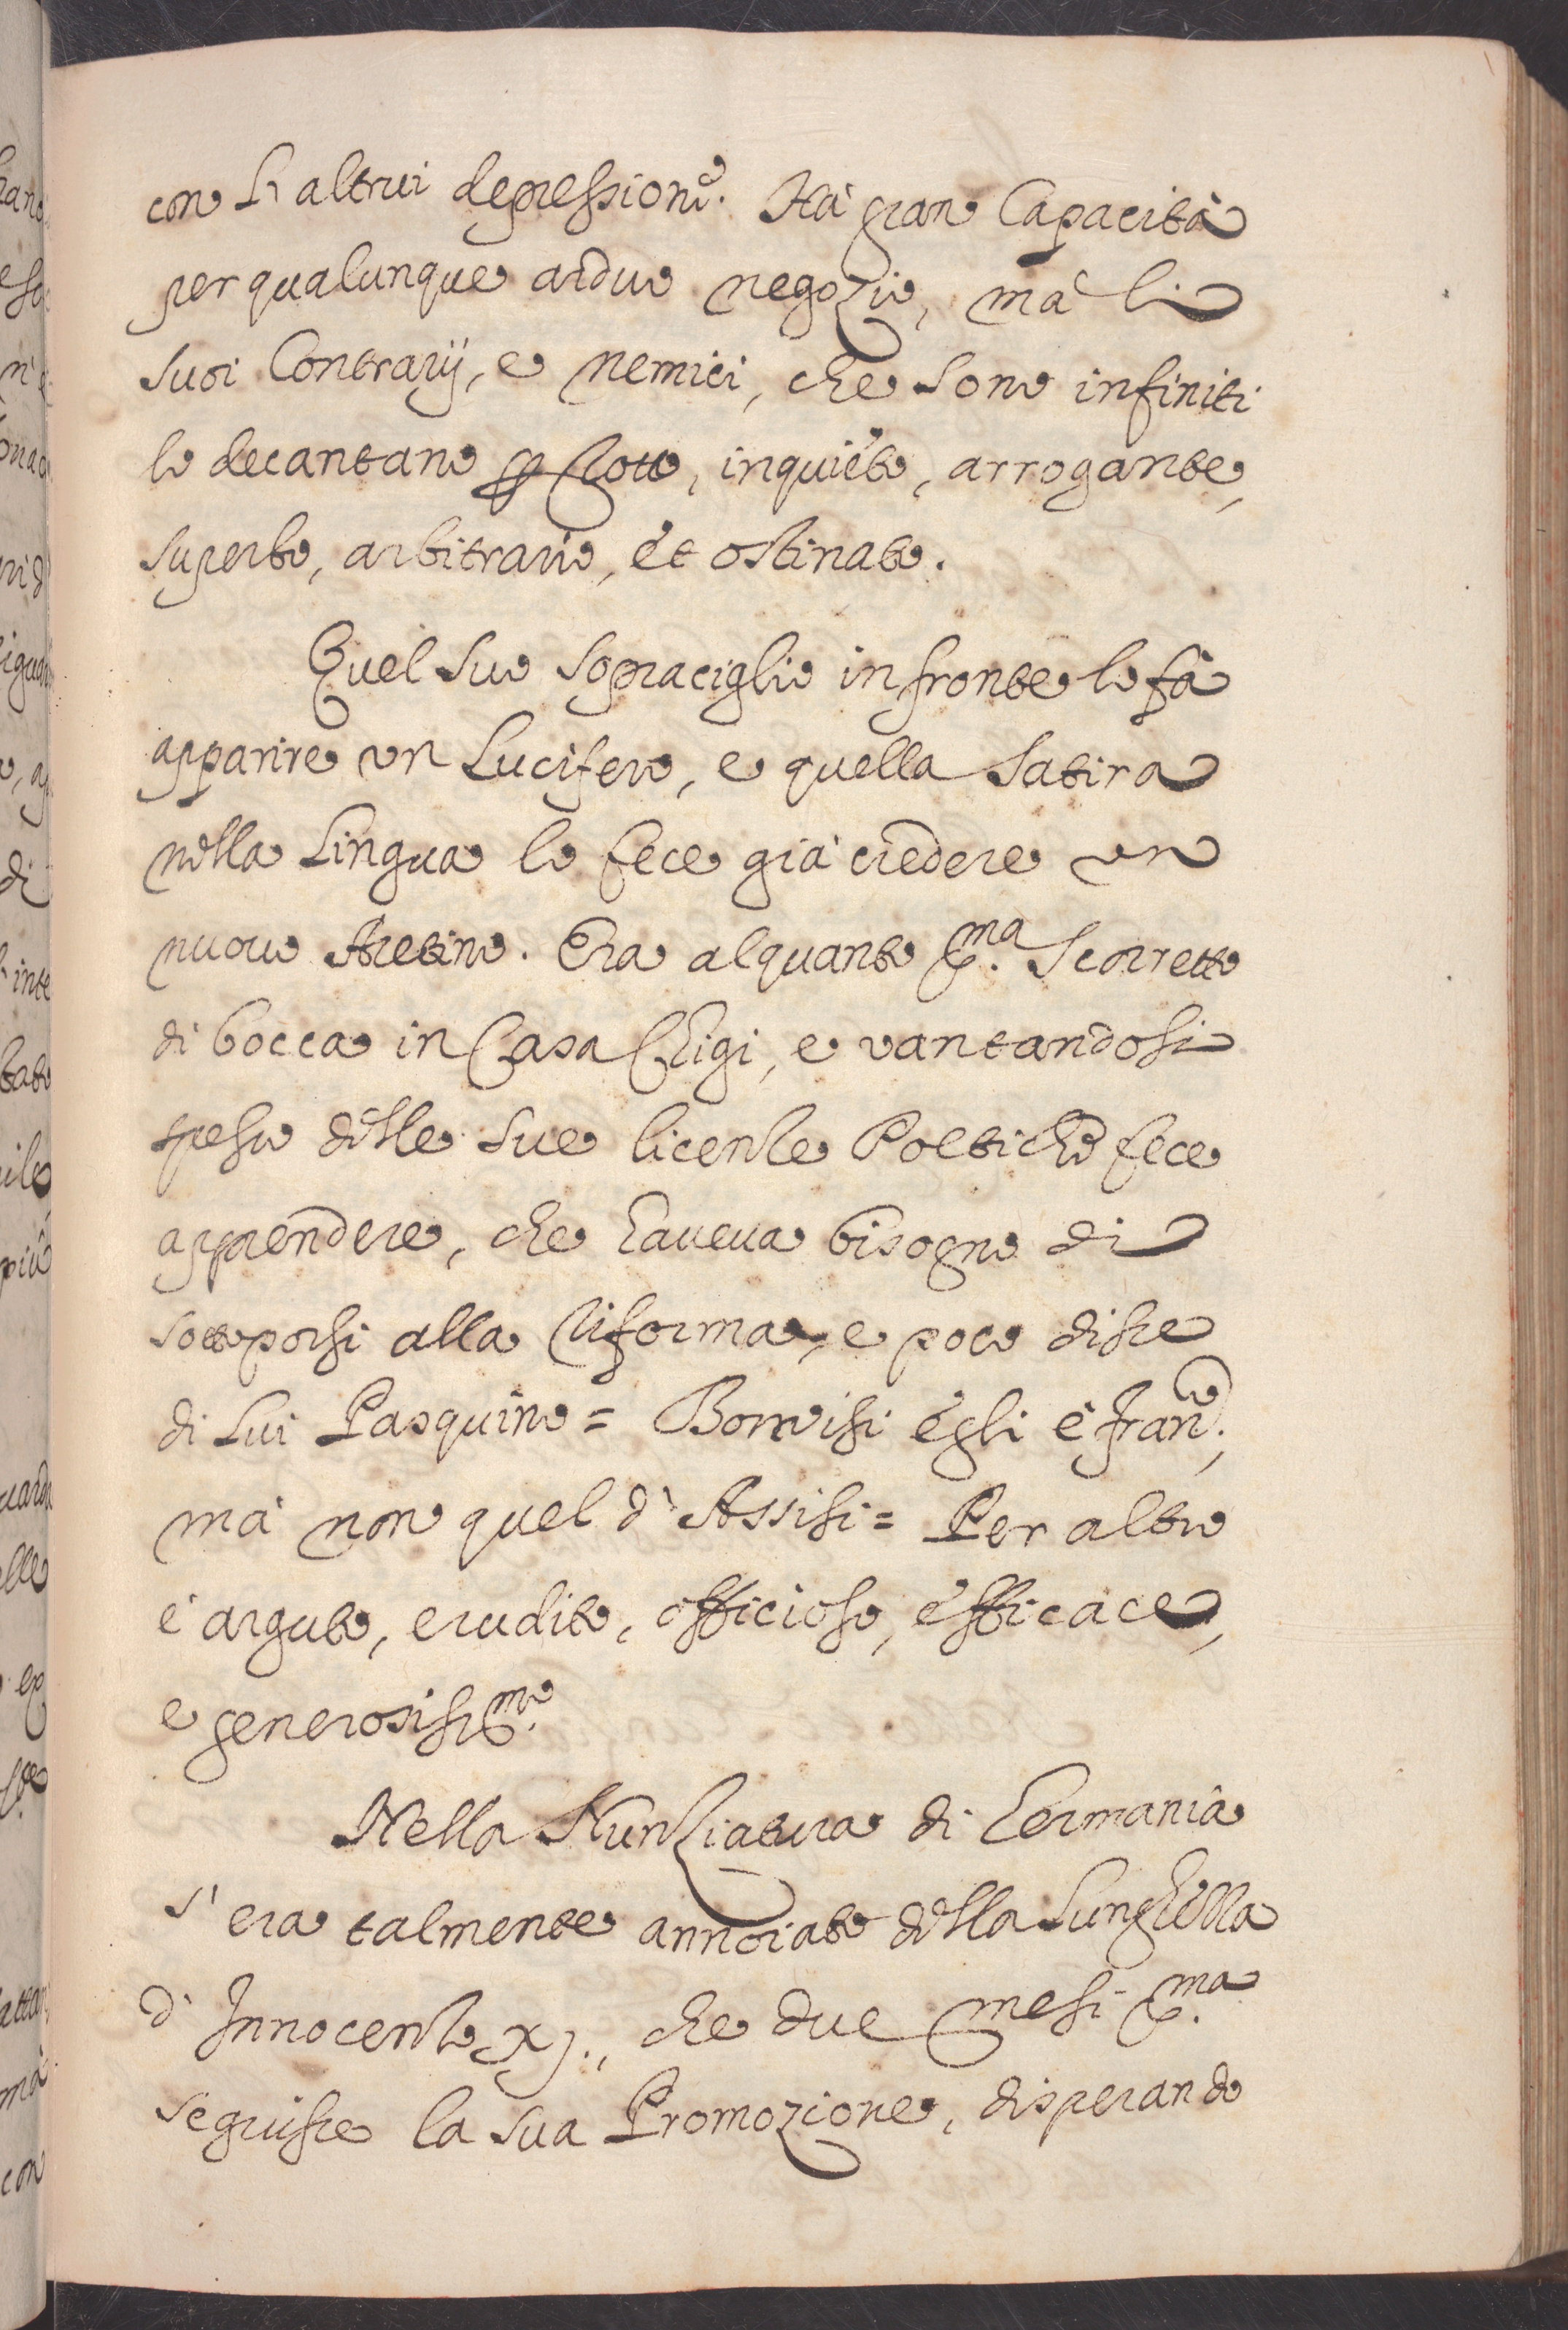 con l'altrui depressione. Hà gran Capacità
per qualunque arduo negozio, mà li
suoi Contrarij, e nemici, che sono infiniti
lo decantano inquieto, arrogante,
superbo, arbitrario, et ostinato.
Quel suo sopraciglio in fronte lo fà
apparire un Lucifero, e quella Satira
nella Lingua lo fece già credere un
nuovo Aretino. Era alquanto p.ma Scorretto
di bocca in Casa Chigi, e vantandosi
spesso delle sue licenze Poetiche fece
apprendere, che haveva bisogno di
sottoporsi alla riforma, e poco disse
di Lui Pasquino = Bonvisi egli è Fran.co,
mà non quel d'Assisi = Per altro
è arguto, erudito, officioso, efficace,
e generosiss.mo
Nella Nunziatura di Germania
s'era talmente annoiato della Lunghezza
d'Innocenzo XI., che due mesi p.ma
seguisse la sua Promozione, disperando